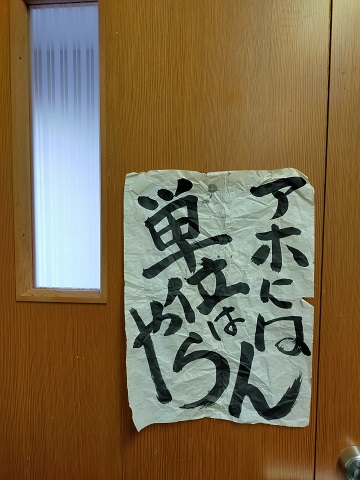 アホには
単位は
やらん